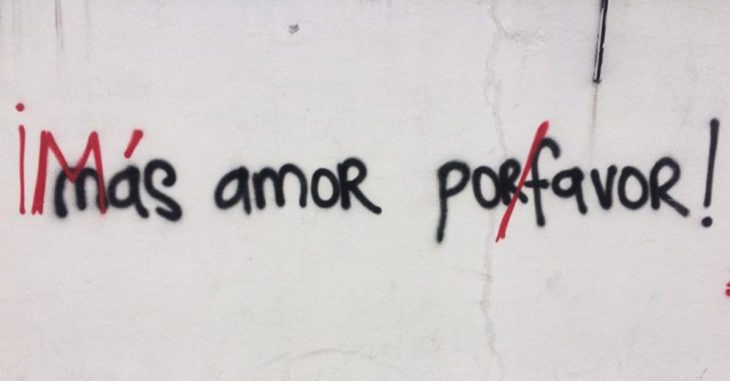 ¡Más amor por/favor!